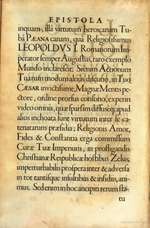 EPISTOLA
inquam, illa virtutum heroicarum Tu-
bâ PÆANA canam, quâ Religiosissimus
LEOPOLDVS I. Romanorum Im-
perator semper Augustus, raro exemplo
Mundo inclarescit. Sed uti Actionum
Tuarum modum
CÆSAR invictissime, Magnæ Mentis pe-
ctore, ordine prorsus consono, expertus
video omnia, quæ sparsim diffusa, apud
alios inchoata sunt virtutum inter se ca-
tenatarum præsidia; Religionis Amor,
Fides & Constantia erga commissum
Curæ Tuæ Imperium, in profligandis
Christianæ Reipublicæ hostibus Zelus,
imperturbabilis prosperi inter & adversa
in tot tantisque infidiis, ani-
mus. Sed enim in hoc ancipiti rerum sta-
tu